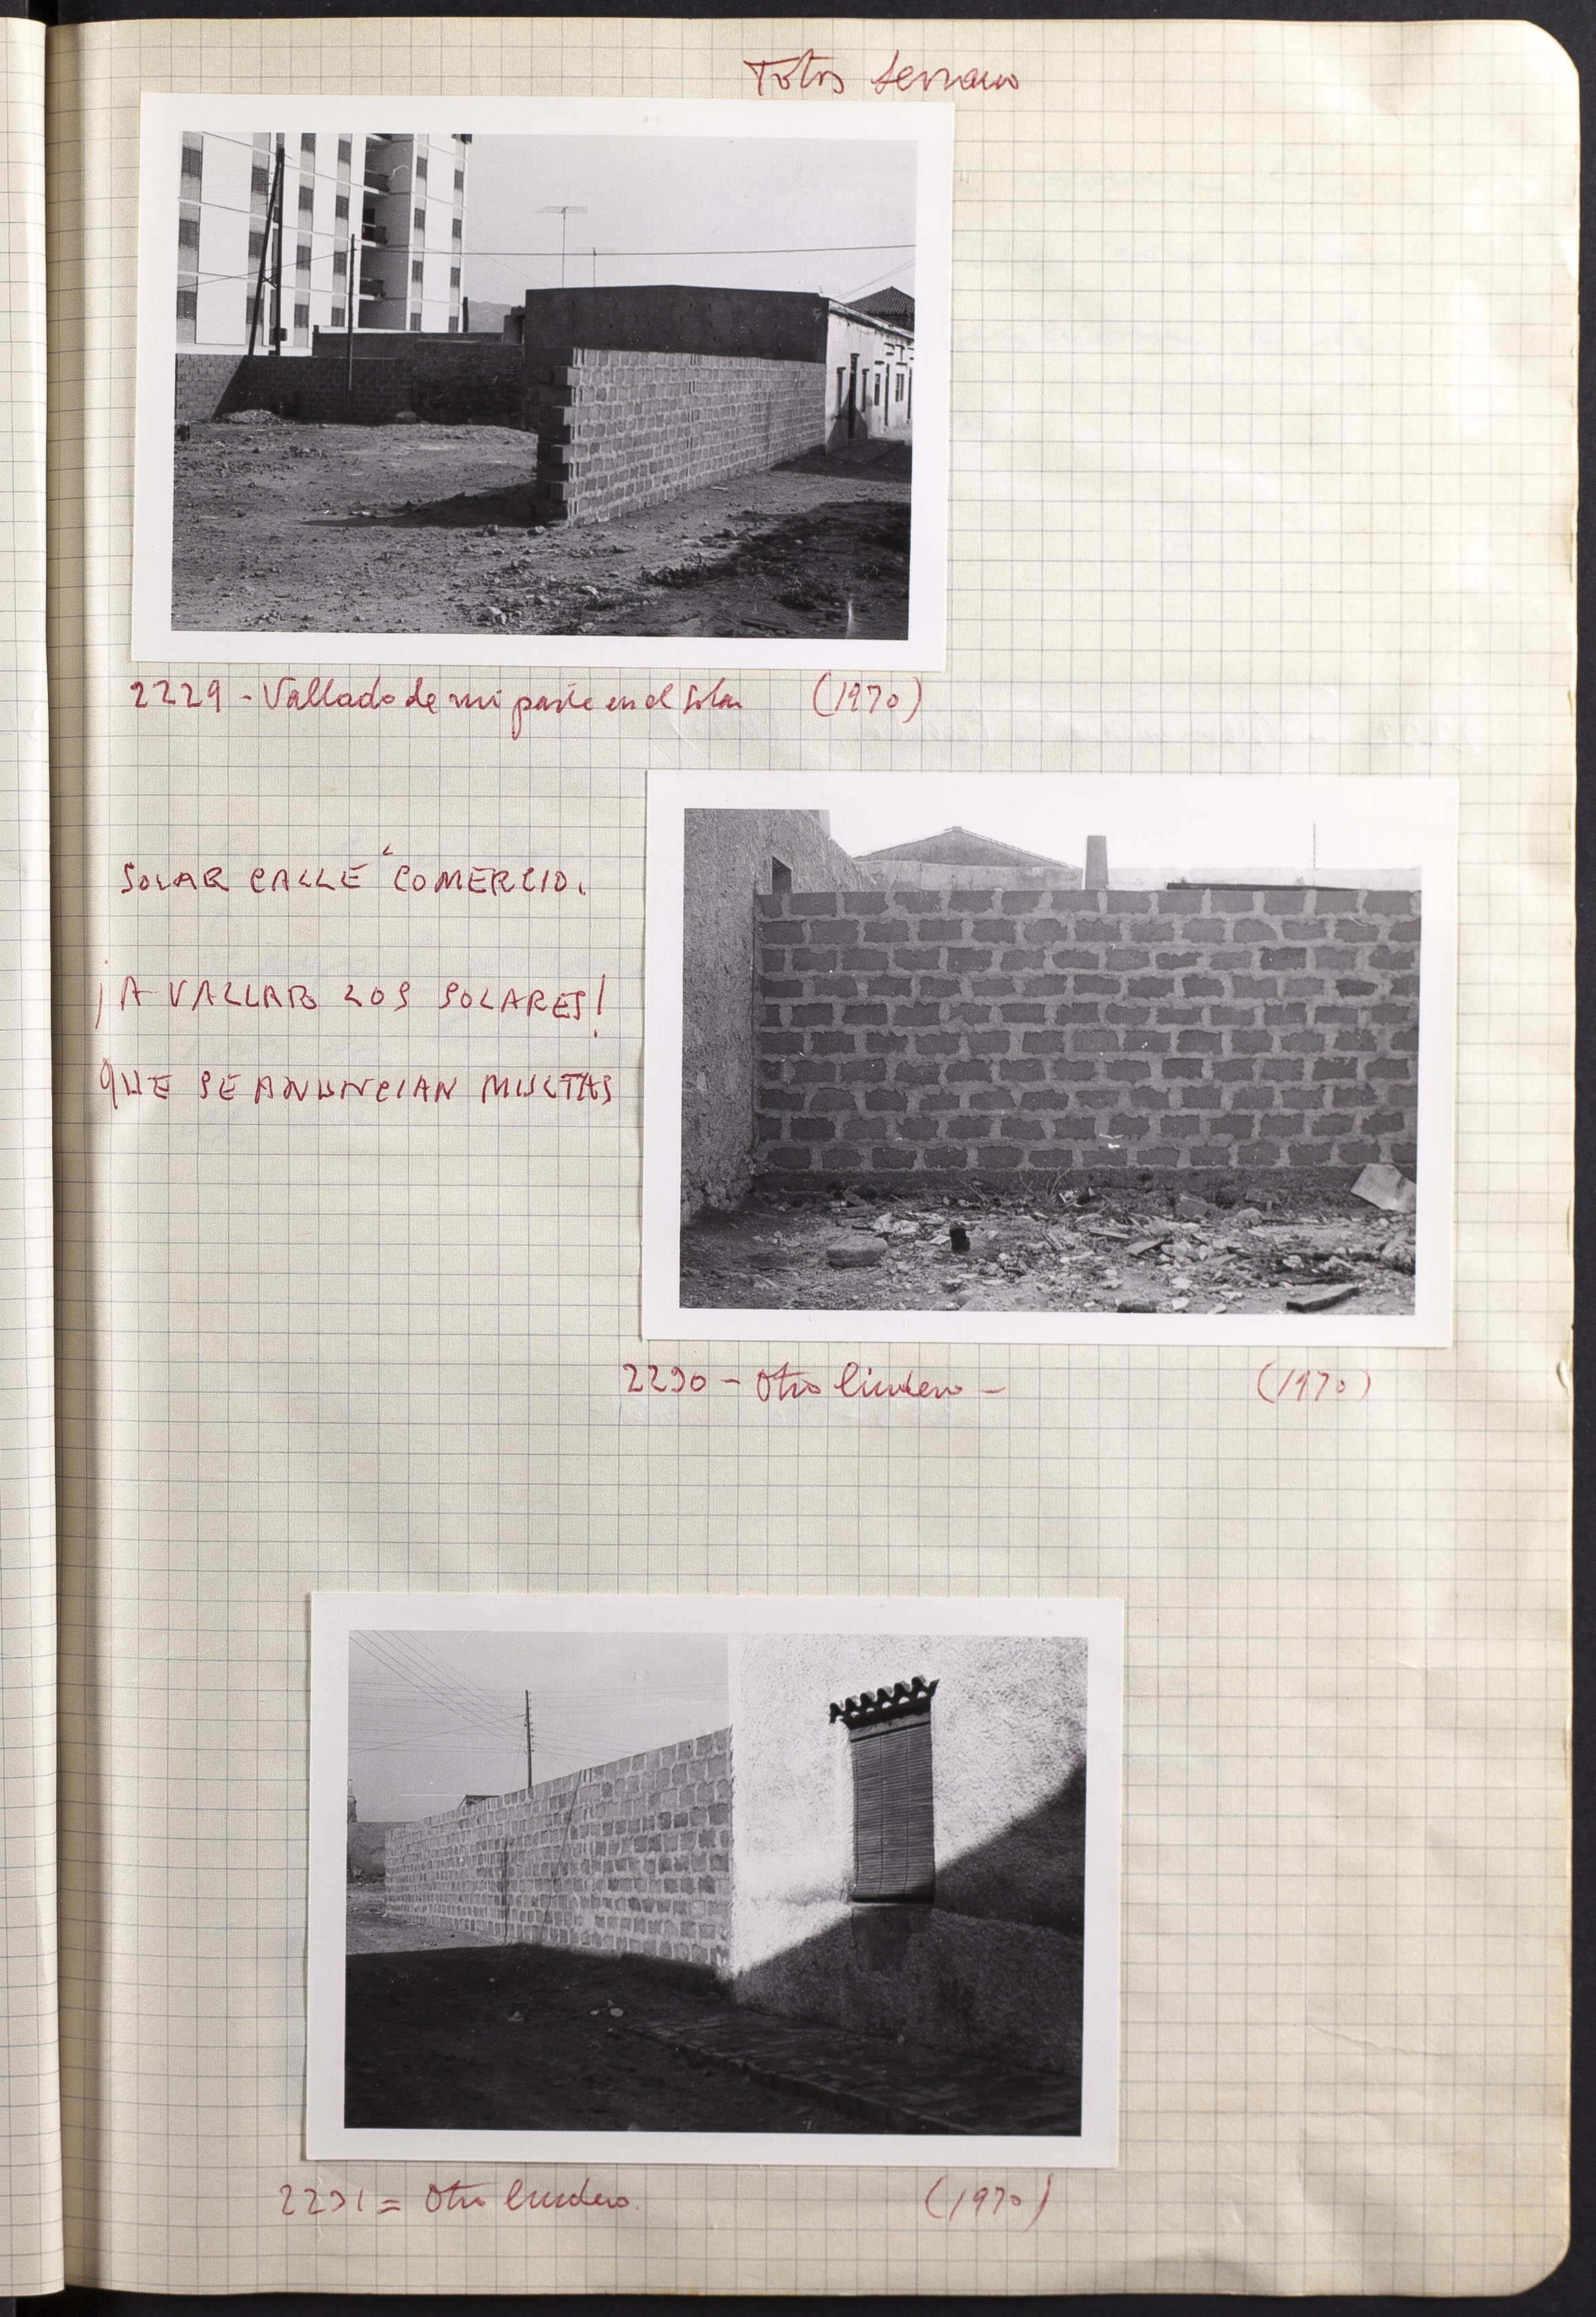 Fotos Serrano
2229 - Vallado de mi parte en el solar (1970)
SOLAR CALLE COMERCIO.
¡A VALLAR LOS SOLARES!
QUE SE ANUNCIAN MULTAS
2230 - Otro lindero - (1970)
2231 = Otro lindero. (1970)